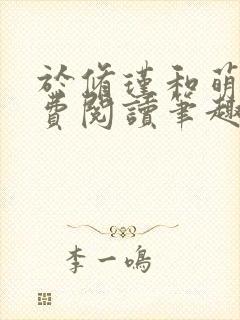 於脩瑾和萌
費閱讀筆趣
李一鳴